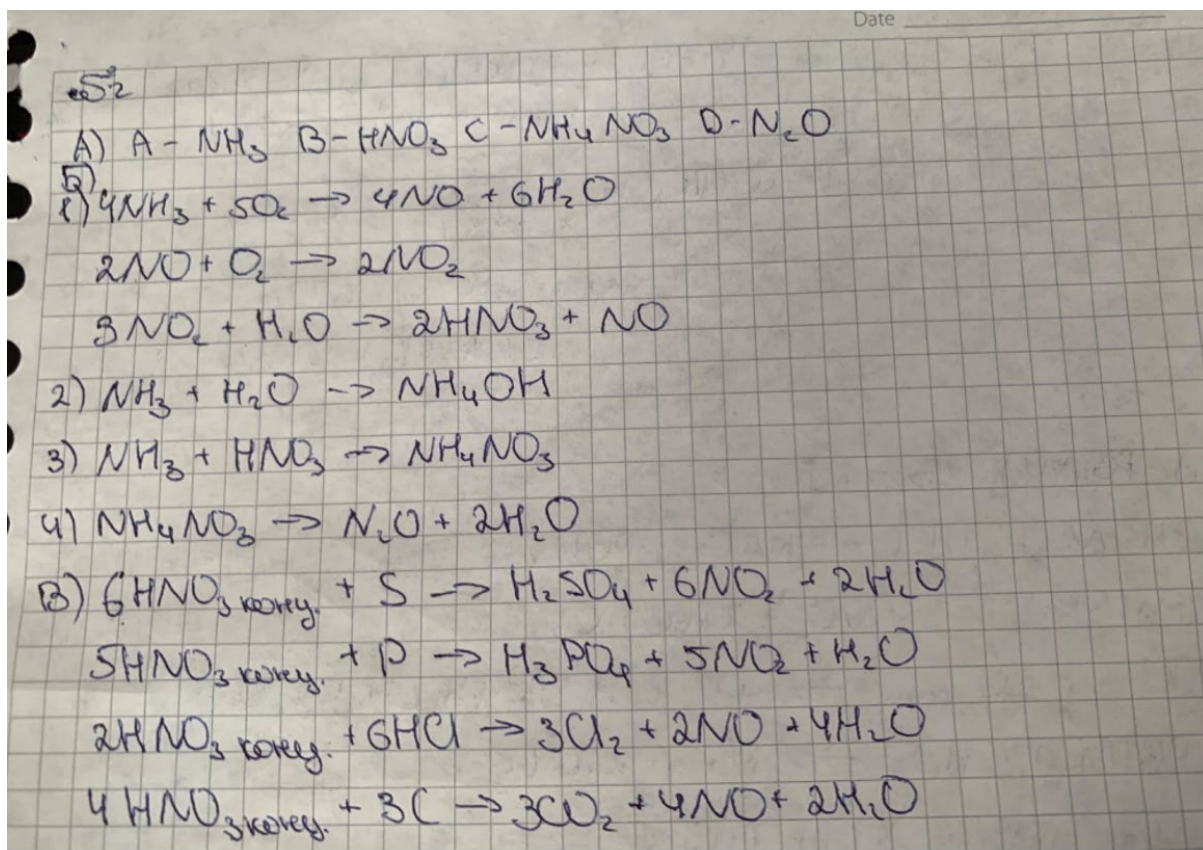 Date
№2
А) A - NH₃ B - HNO₃ C - NH₄NO₃ D - N₂O
Б)
1) 4NH₃ + 5O₂ → 4NO + 6H₂O
2NO + O₂ → 2NO₂
3NO₂ + H₂O → 2HNO₃ + NO
2) NH₃ + H₂O → NH₄OH
3) NH₃ + HNO₃ → NH₄NO₃
4) NH₄NO₃ → N₂O + 2H₂O
В) 6HNO₃ конц. + S → H₂SO₄ + 6NO₂ + 2H₂O
5HNO₃ конц. + P → H₃PO₄ + 5NO₂ + H₂O
2HNO₃ конц. + 6HCl → 3Cl₂ + 2NO + 4H₂O
4HNO₃ конц. + 3C → 3CO₂ + 4NO + 2H₂O